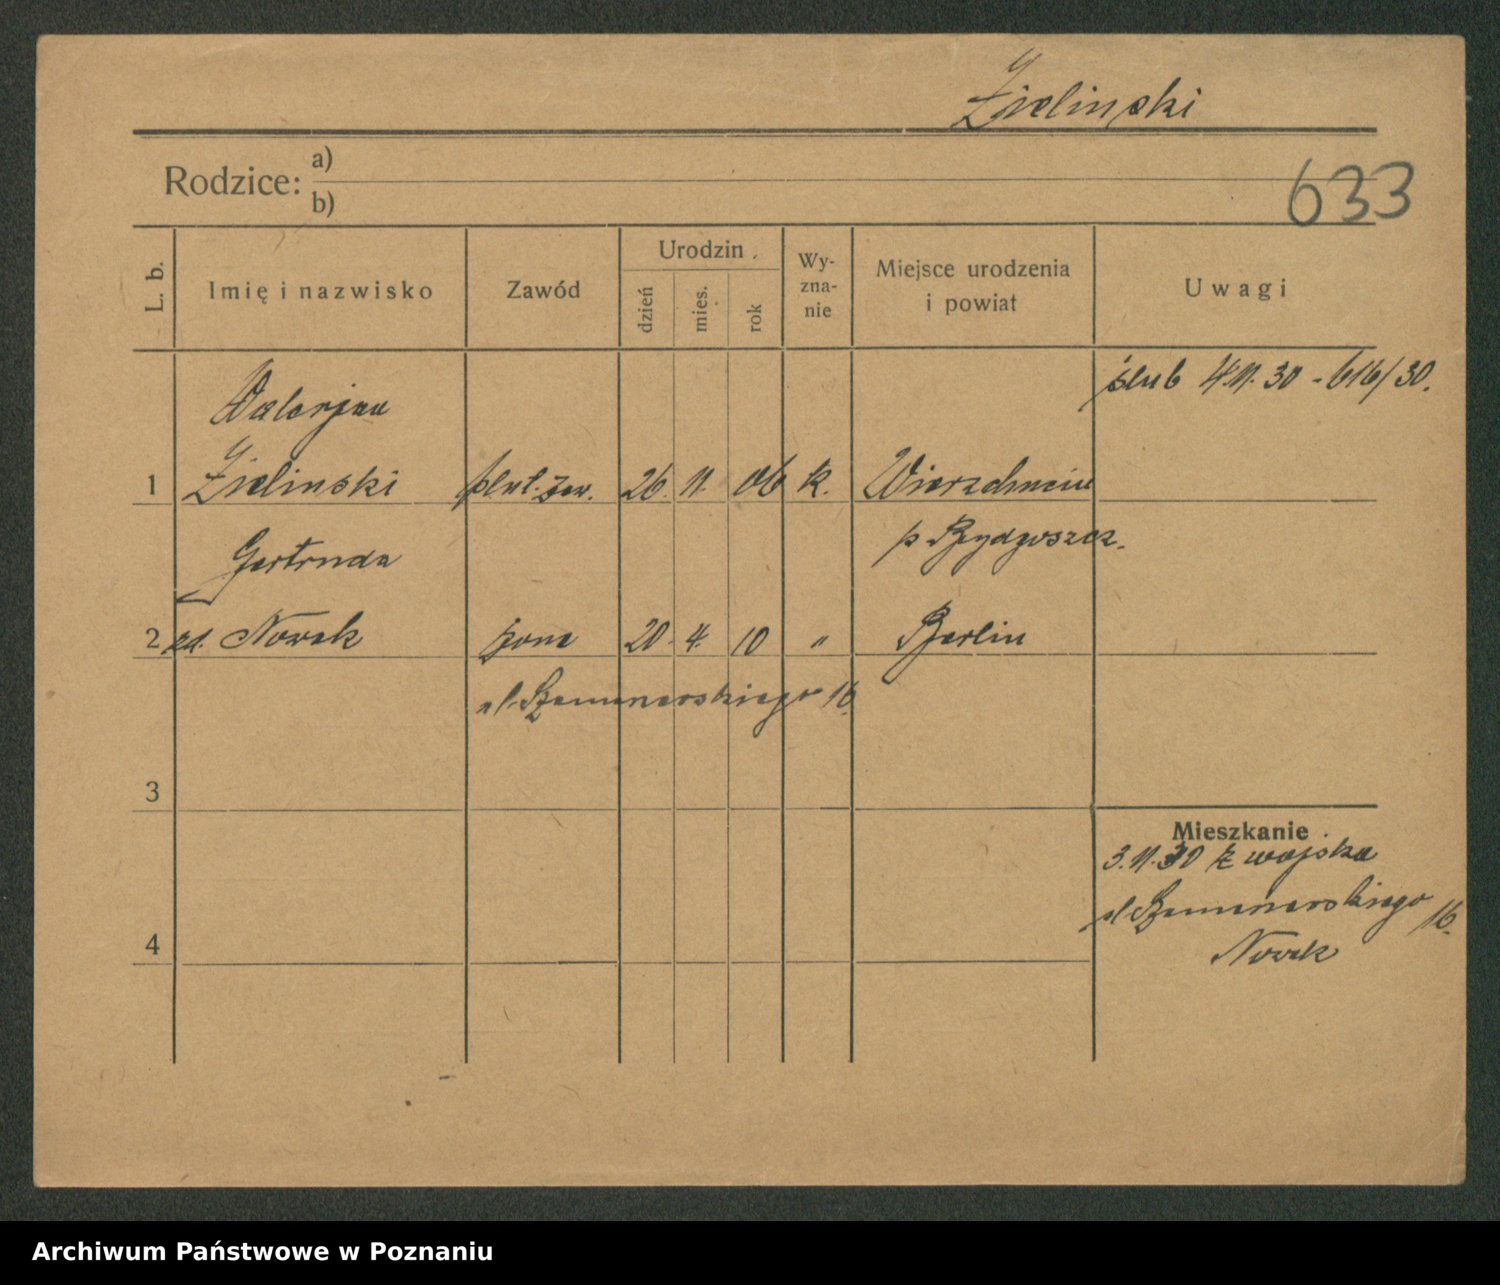 Zielinski
Rodzice:
a)
b)
633
L. b.
Imię i nazwisko
Zawód
Urodzin
dzień
mies.
rok
Wy-
zna-
nie
Miejsce urodzenia
i powiat
Uwagi
ślub 4.11.30 - 616/30.
Walerjan
1 Zielinski plut. zaw. 26. 11. 06 k. Wierzchucin
Gertruda p Bydgoszcz.
2 zd. Nowak żona 20. 4. 10 " Berlin
ul. Szamarzewskiego 16
3
Mieszkanie
3.11.30 z wojska
ul Szamarzewskiego 16.
Nowak
4
Archiwum Państwowe w Poznaniu